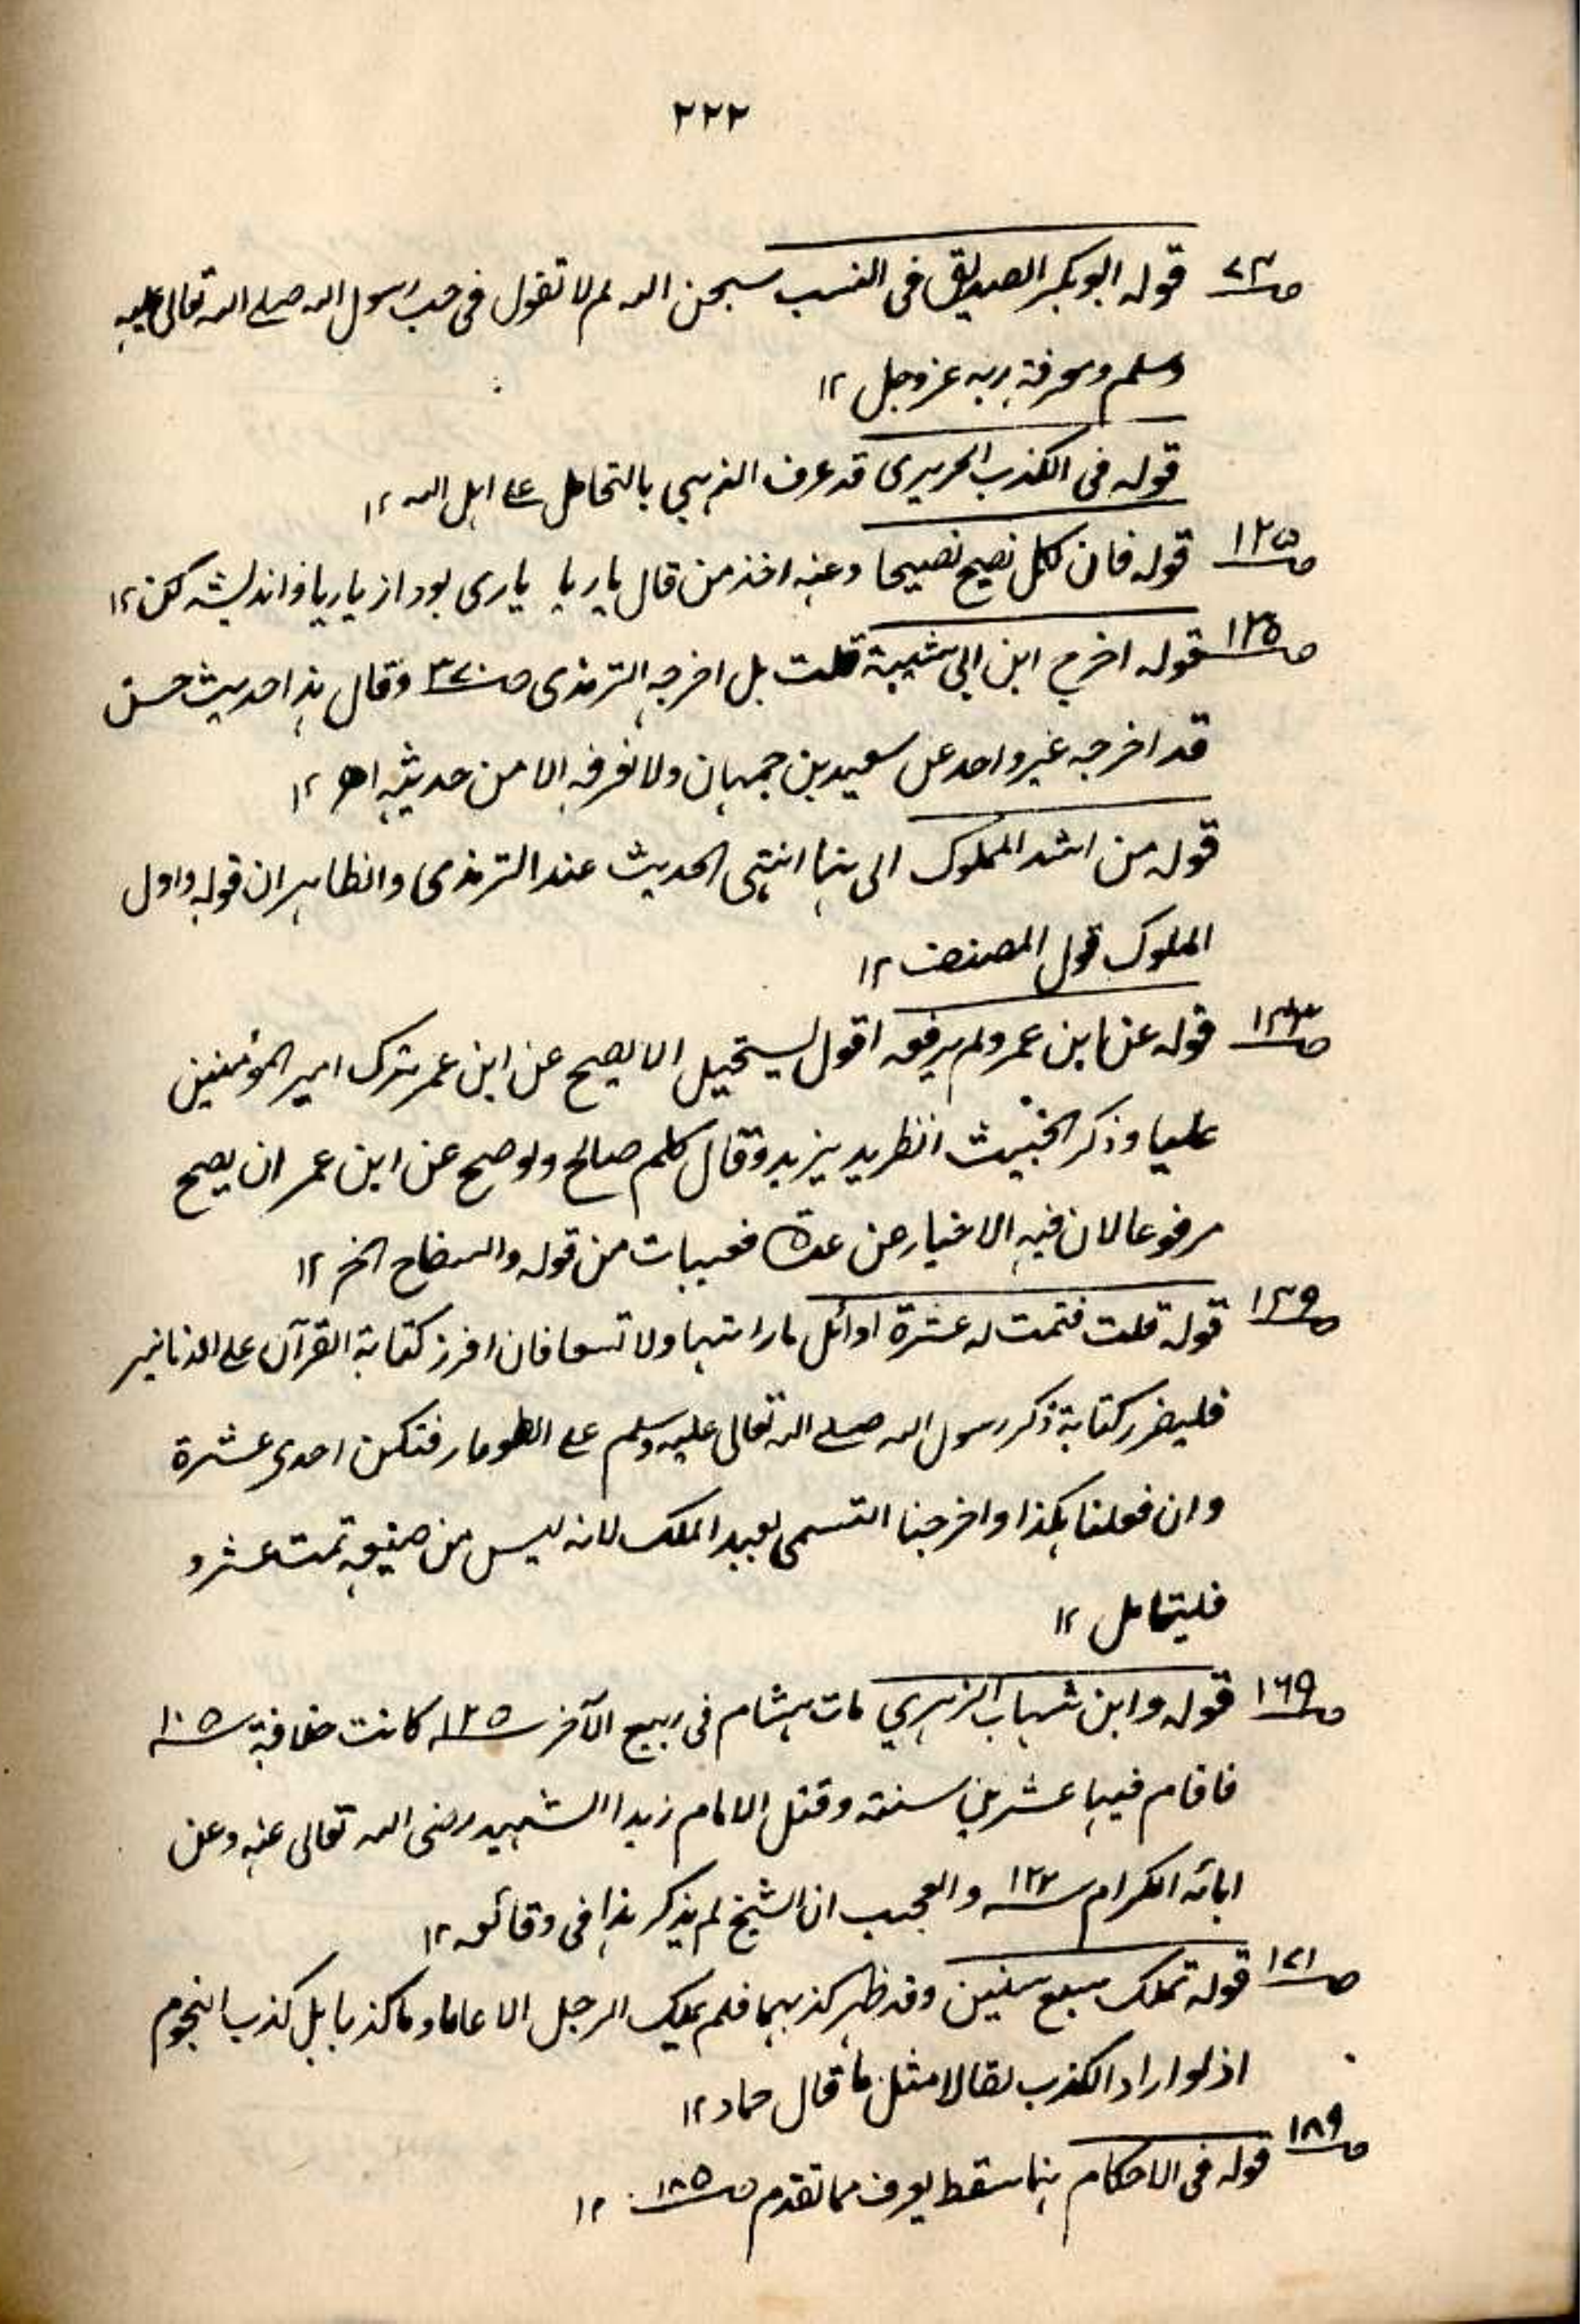 ٢٢٢
ص٧٣ قوله ابوبكر الصديق فى النسب سبحن الله لم لا تقول فى حب رسول الله صلے الله تعالى عليه
وسلم ومعرفة ربه عزوجل ١٢
قوله فى الكذب الحريرى قد عرف الذهبي بالتحامل علے اهل الله ١٢
ص١٢٥ قوله فان لكل نصيح نصيحا وعنه اخذ من قال يار يا يارى بود از يار يار اندليشه كن ١٢
ص١٣٥ قوله اخرج ابن ابي شيبة قلت بل اخرجه الترمذى ص٣٢٠ وقال هذا حديث حسن
قد اخرجه غير واحد عن سعيد بن جمهان ولا نعرفه الا من حديثه اھ ١٢
قوله من اشد الملوك الى هنا انتهى الحديث عند الترمذى والظاهر ان قوله واول
الملوك قول المصنف ١٢
قوله عن ابن عمر ولم يرفعه اقول يستحيل الا يصح عن ابن عمر بترك امير المؤمنين
عليا وذكر الخبيث الطريد يزيد وقال كلهم صالح ولو صح عن ابن عمر ان يصح
مرفوعا لان فيه الاخبار عن عدة مغيبات من قوله والسفاح الخ ١٢
ص١٣٩ قوله قلت فتمت له عشرة اوائل ما رايتها ولا تسعا فان افرز كتابة القرآن على الدنانير
فليفرز كتابة ذكر رسول الله صلے الله تعالى عليه وسلم علے الطومار فتكن احدى عشرة
وان فعلنا هكذا واخرجنا التسمى بعبد الملك لانه ليس من صنيعه تمت عشرو
فليتامل ١٢
ص١٦٩ قوله وابن شهاب الزهري مات هشام فى ربيع الآخر سـ١٢٥ كانت خلافة سـ١٠٥
فاقام فيها عشرين سنة وقتل الامام زيدا الشهيد رضى الله تعالى عنه وعن
ابائه الكرام سـ١٢٢ والعجب ان الشيخ لم يذكر هذا فى وقائعه ١٢
ص١٧١ قوله تملك سبع سنين وقد ظهر كذبهما فلم يملك الرجل الا عاما وما كذبا بل كذب النجوم
اذ لو اراد الكذب لقالا مثل ما قال حماد ١٢
ص١٨٩ قوله فى الاحكام هنا سقط يعرف مما تقدم ص١٨٥ ١٢